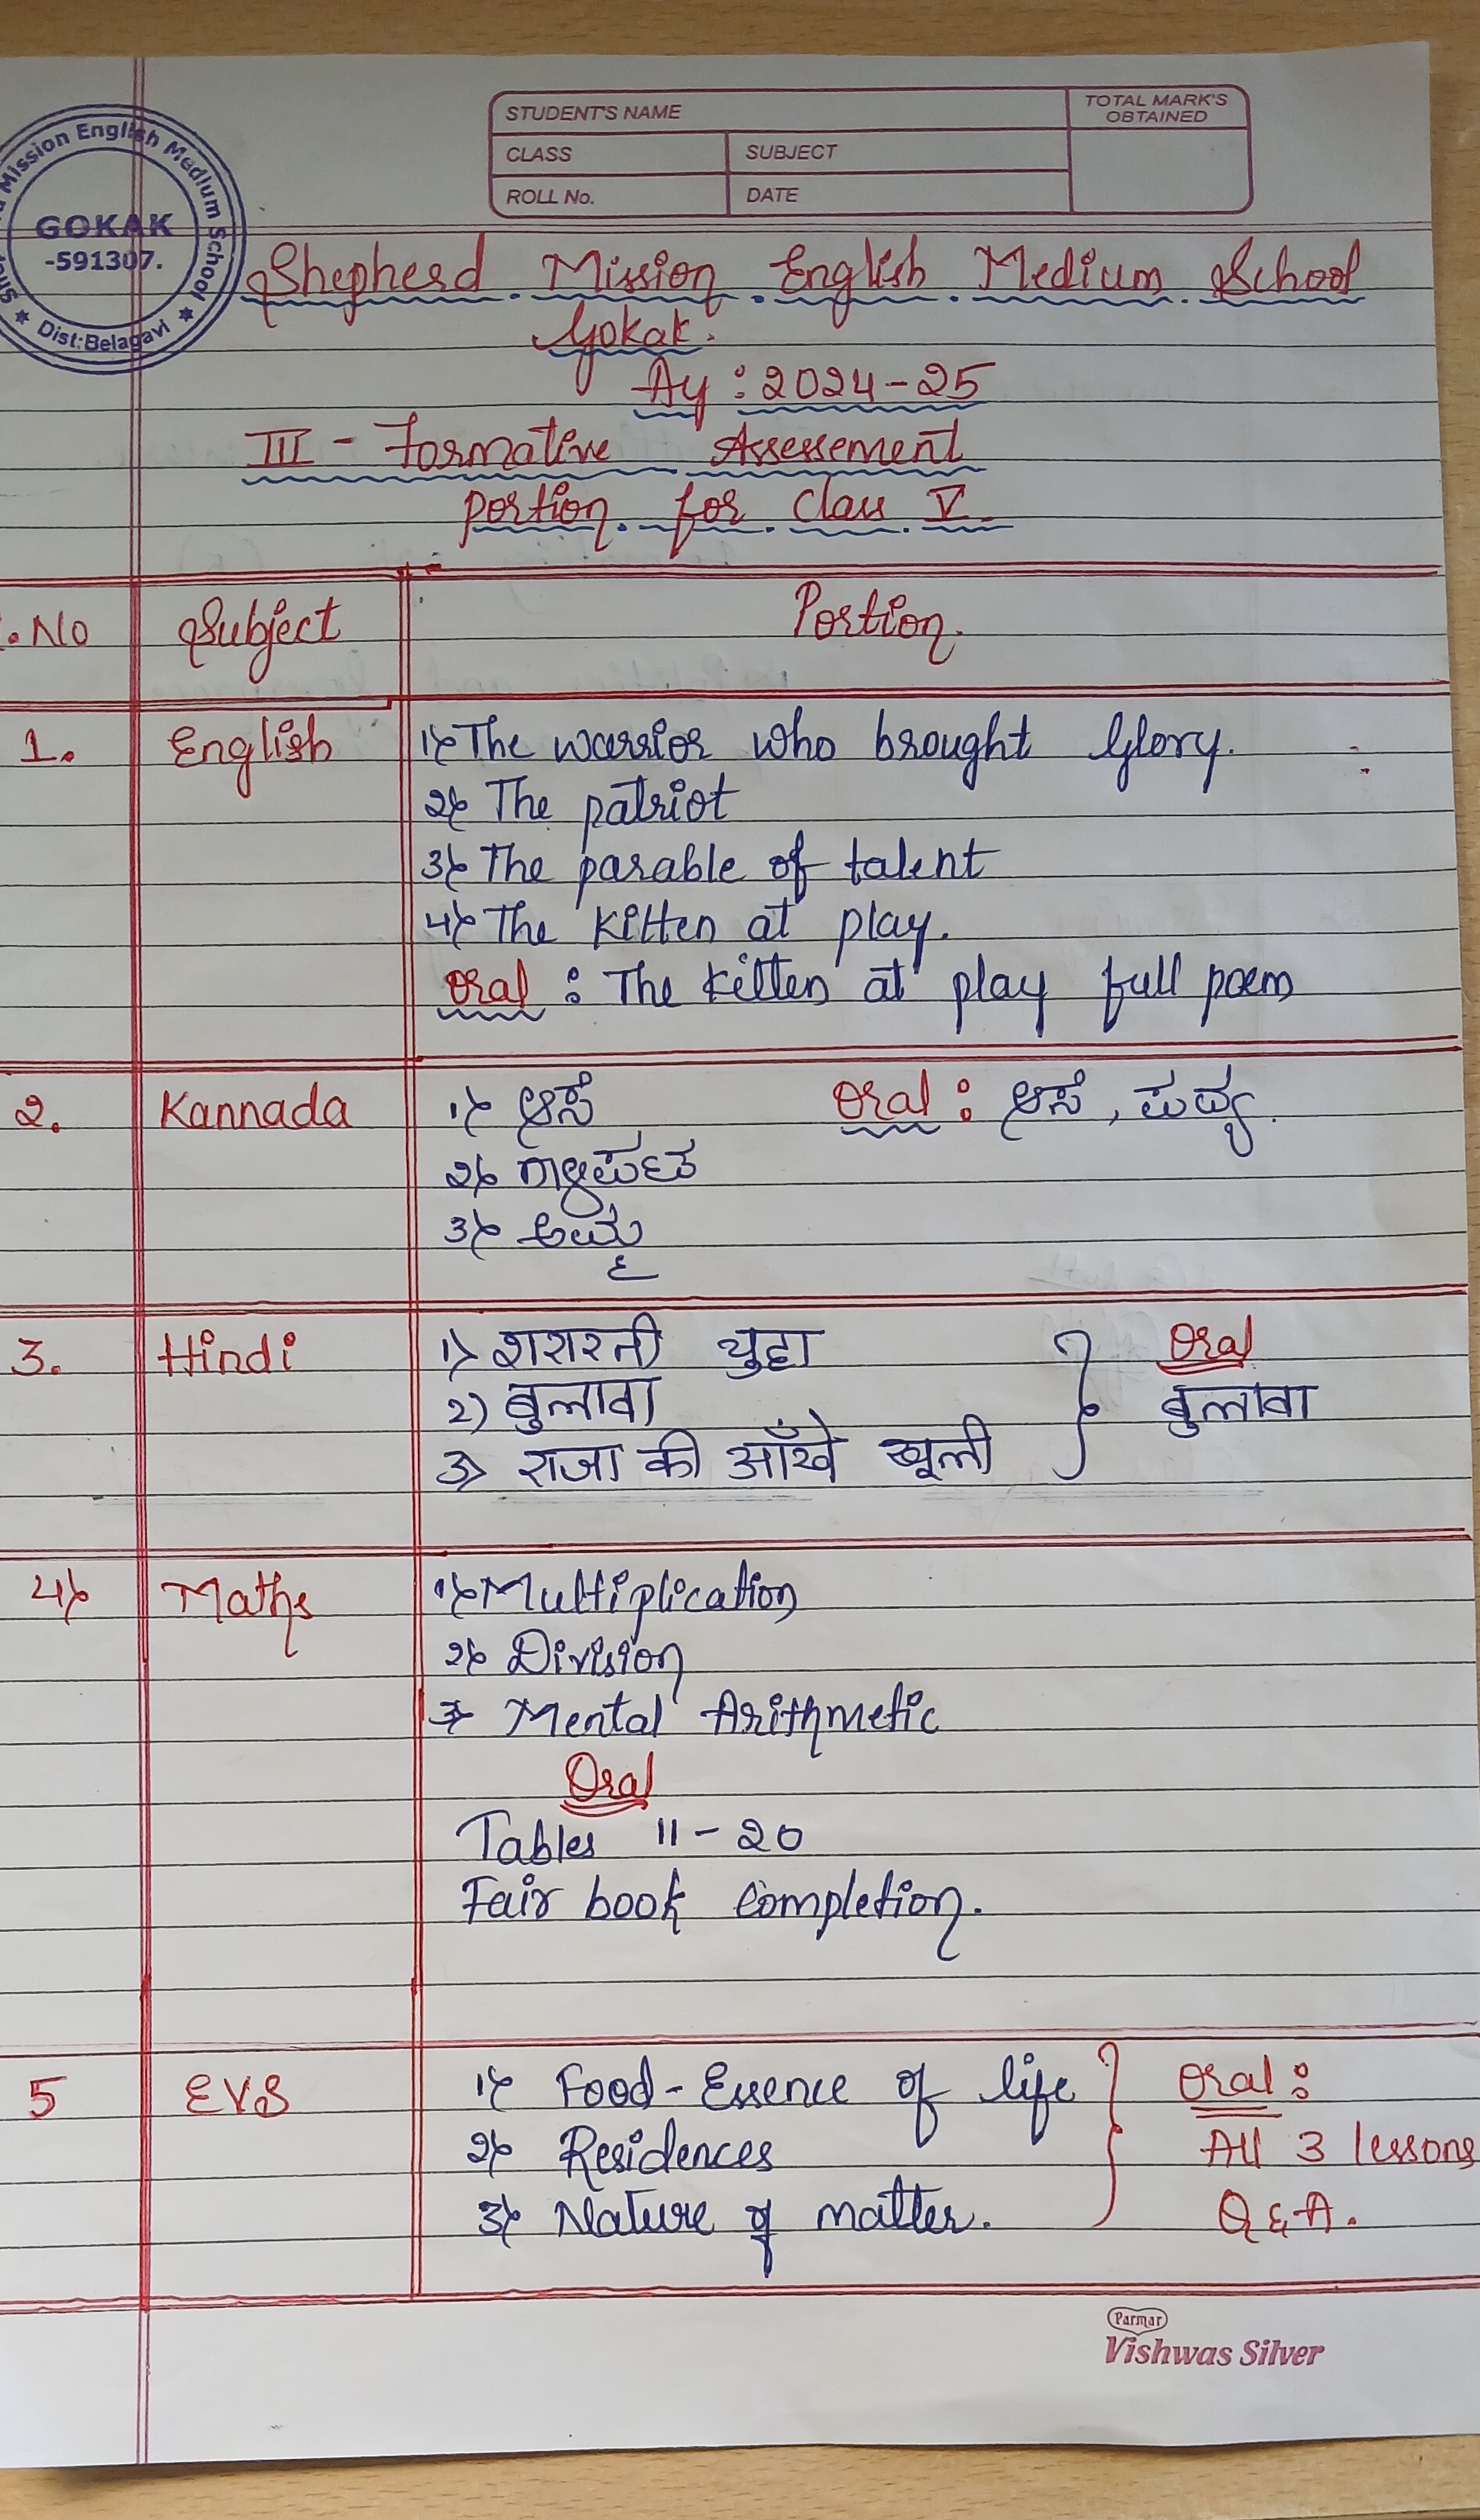 Mission English Medium School
GOKAK
-591307.
Dist:Belagavi
STUDENT'S NAME
TOTAL MARK'S OBTAINED
CLASS
SUBJECT
ROLL No.
DATE
Shepherd Mission English Medium School
Gokak.
Ay : 2024-25
III - Formative Assessement
portion for class V
.No Subject Portion.
1. English 1) The warrior who brought Glory.
2) The patriot
3) The parable of talent
4) The kitten at play.
Oral : The kitten at play full poem
2. Kannada 1) ಆಸೆ Oral : ಆಸೆ , ಪದ್ಯ.
2)
3) ಅಮ್ಮ
3. Hindi 1) शरारती चुहा Oral
2) बुलावा बुलावा
3) राजा की आँखे खूली
4) Maths 1) Multiplication
2) Division
3) Mental Arithmetic
Oral
Tables 11-20
Fair book completion.
5 EVS 1) Food-Essence of life Oral :
2) Residences All 3 lessons
3) Nature of matter. Q & A.
Parmar
Vishwas Silver